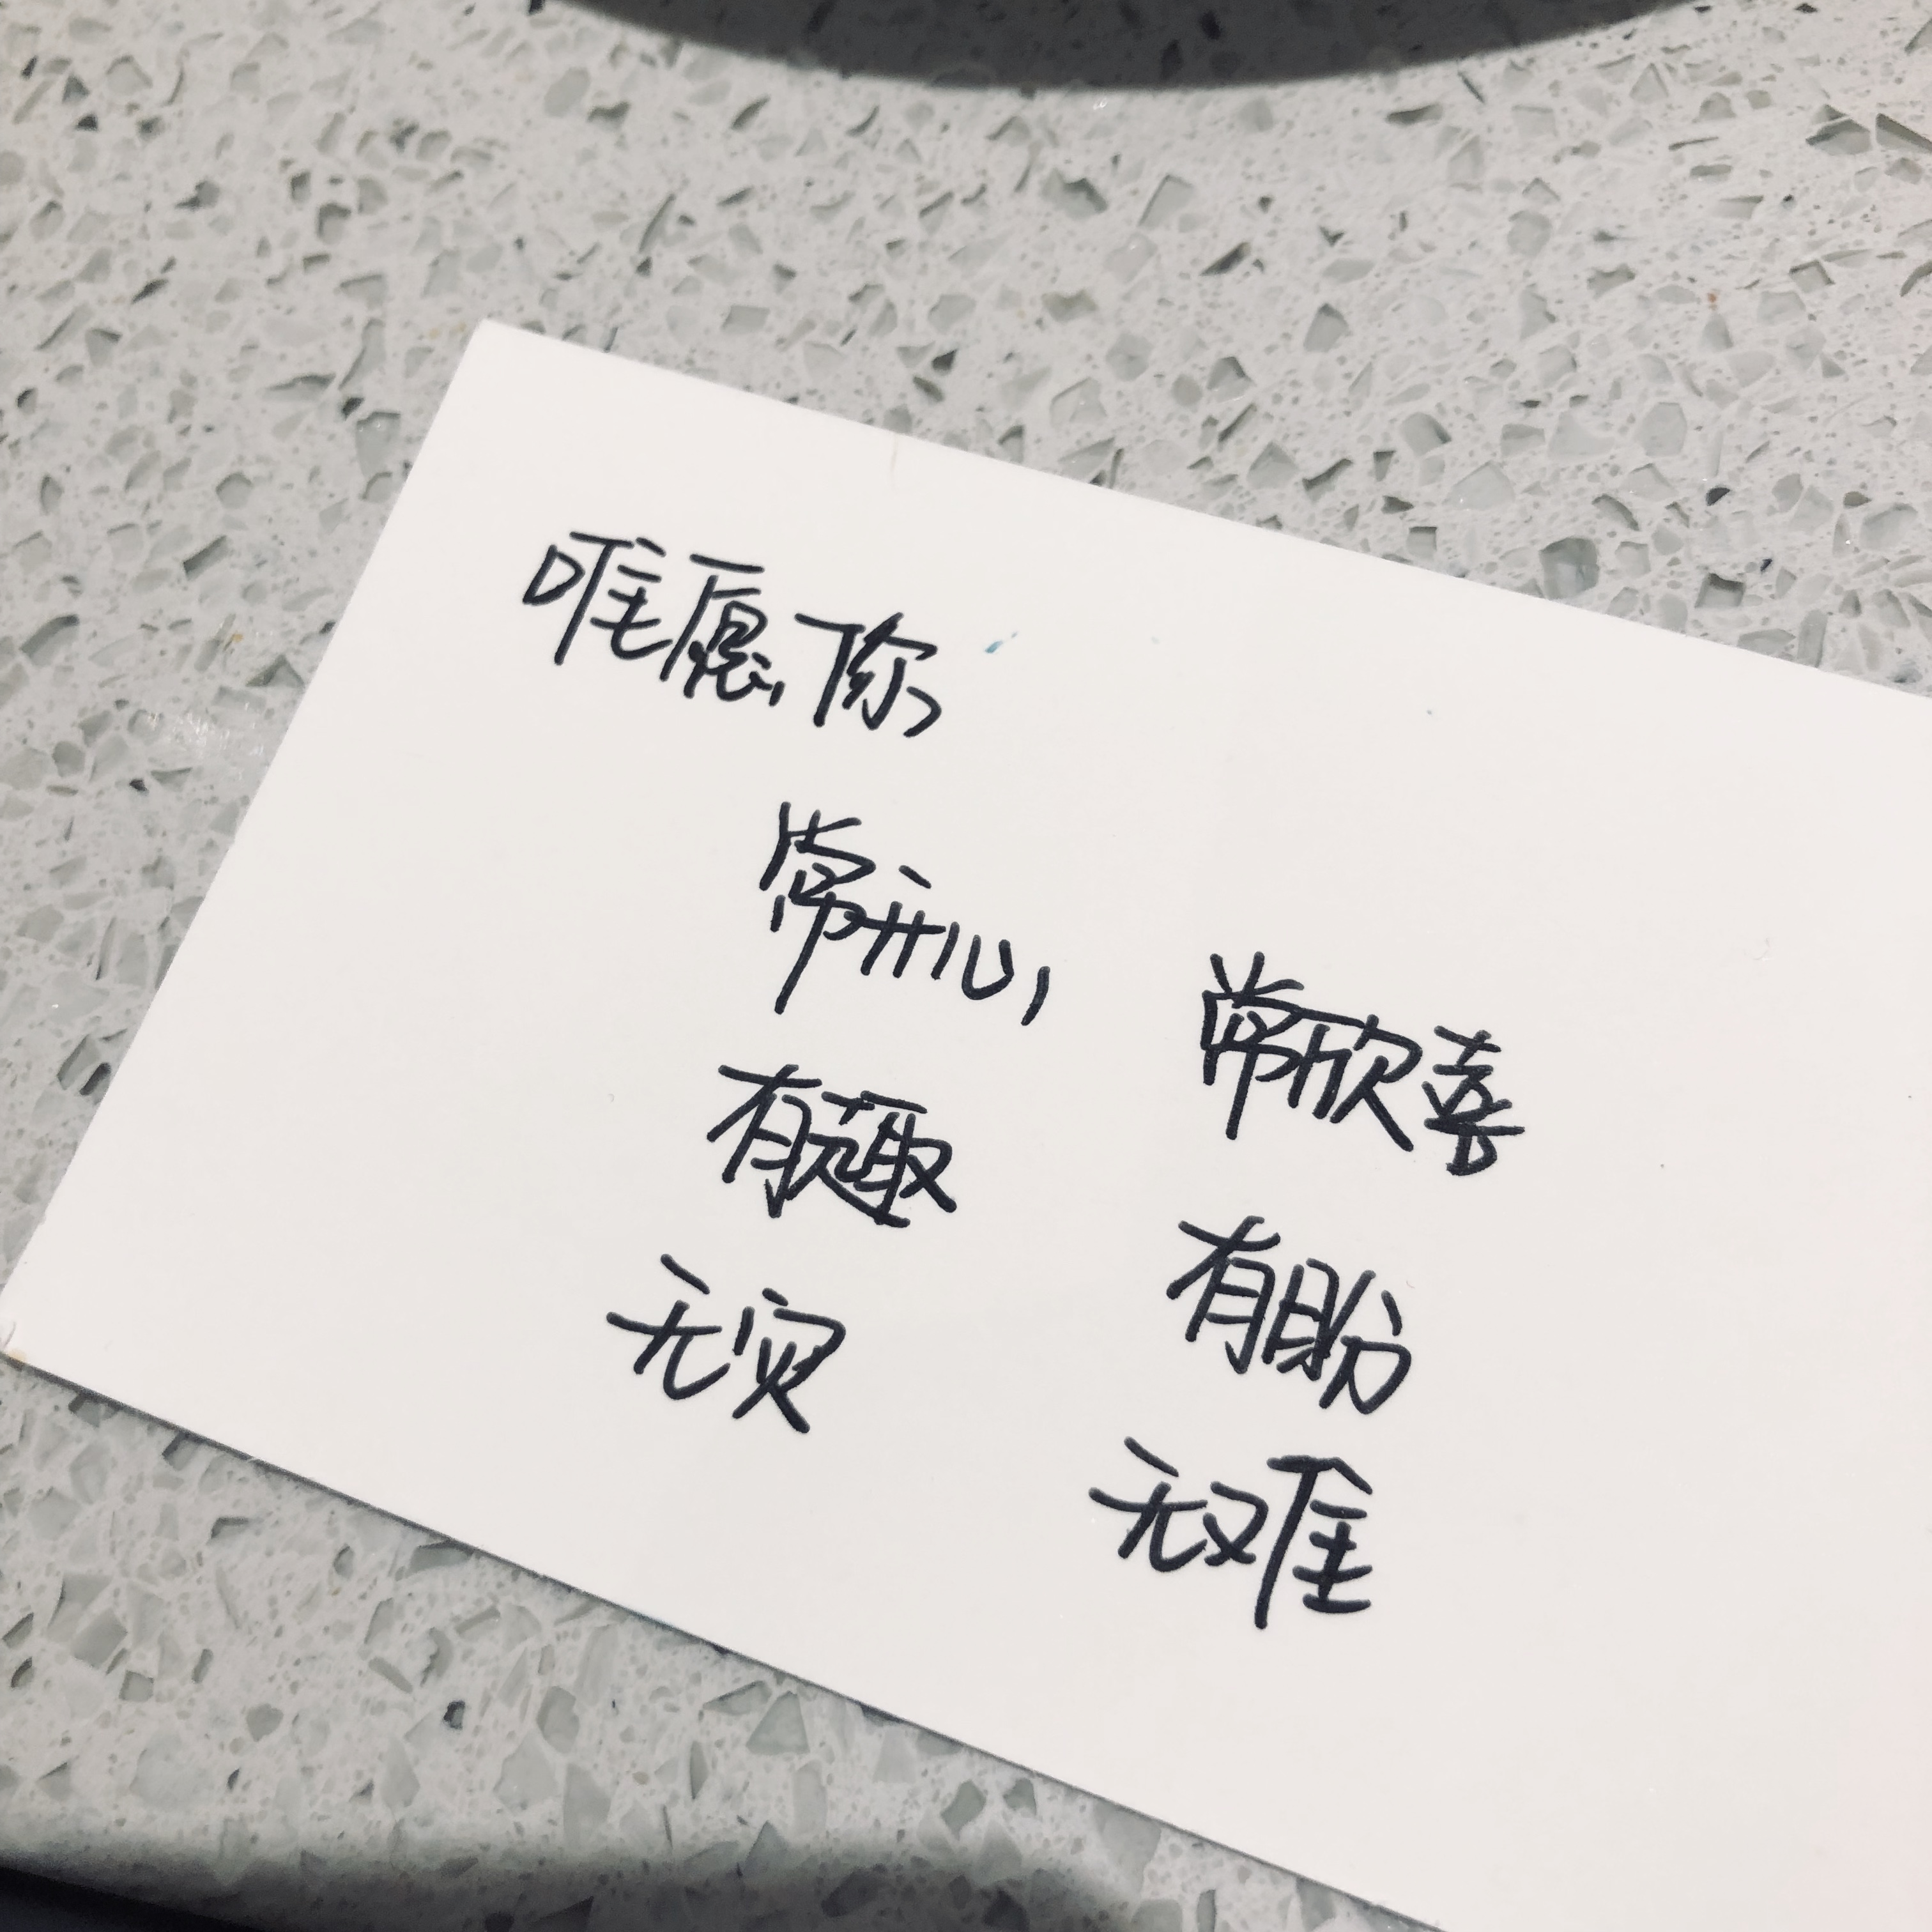 唯愿你
常开心 常欣喜
有趣 有盼
无灾 无难